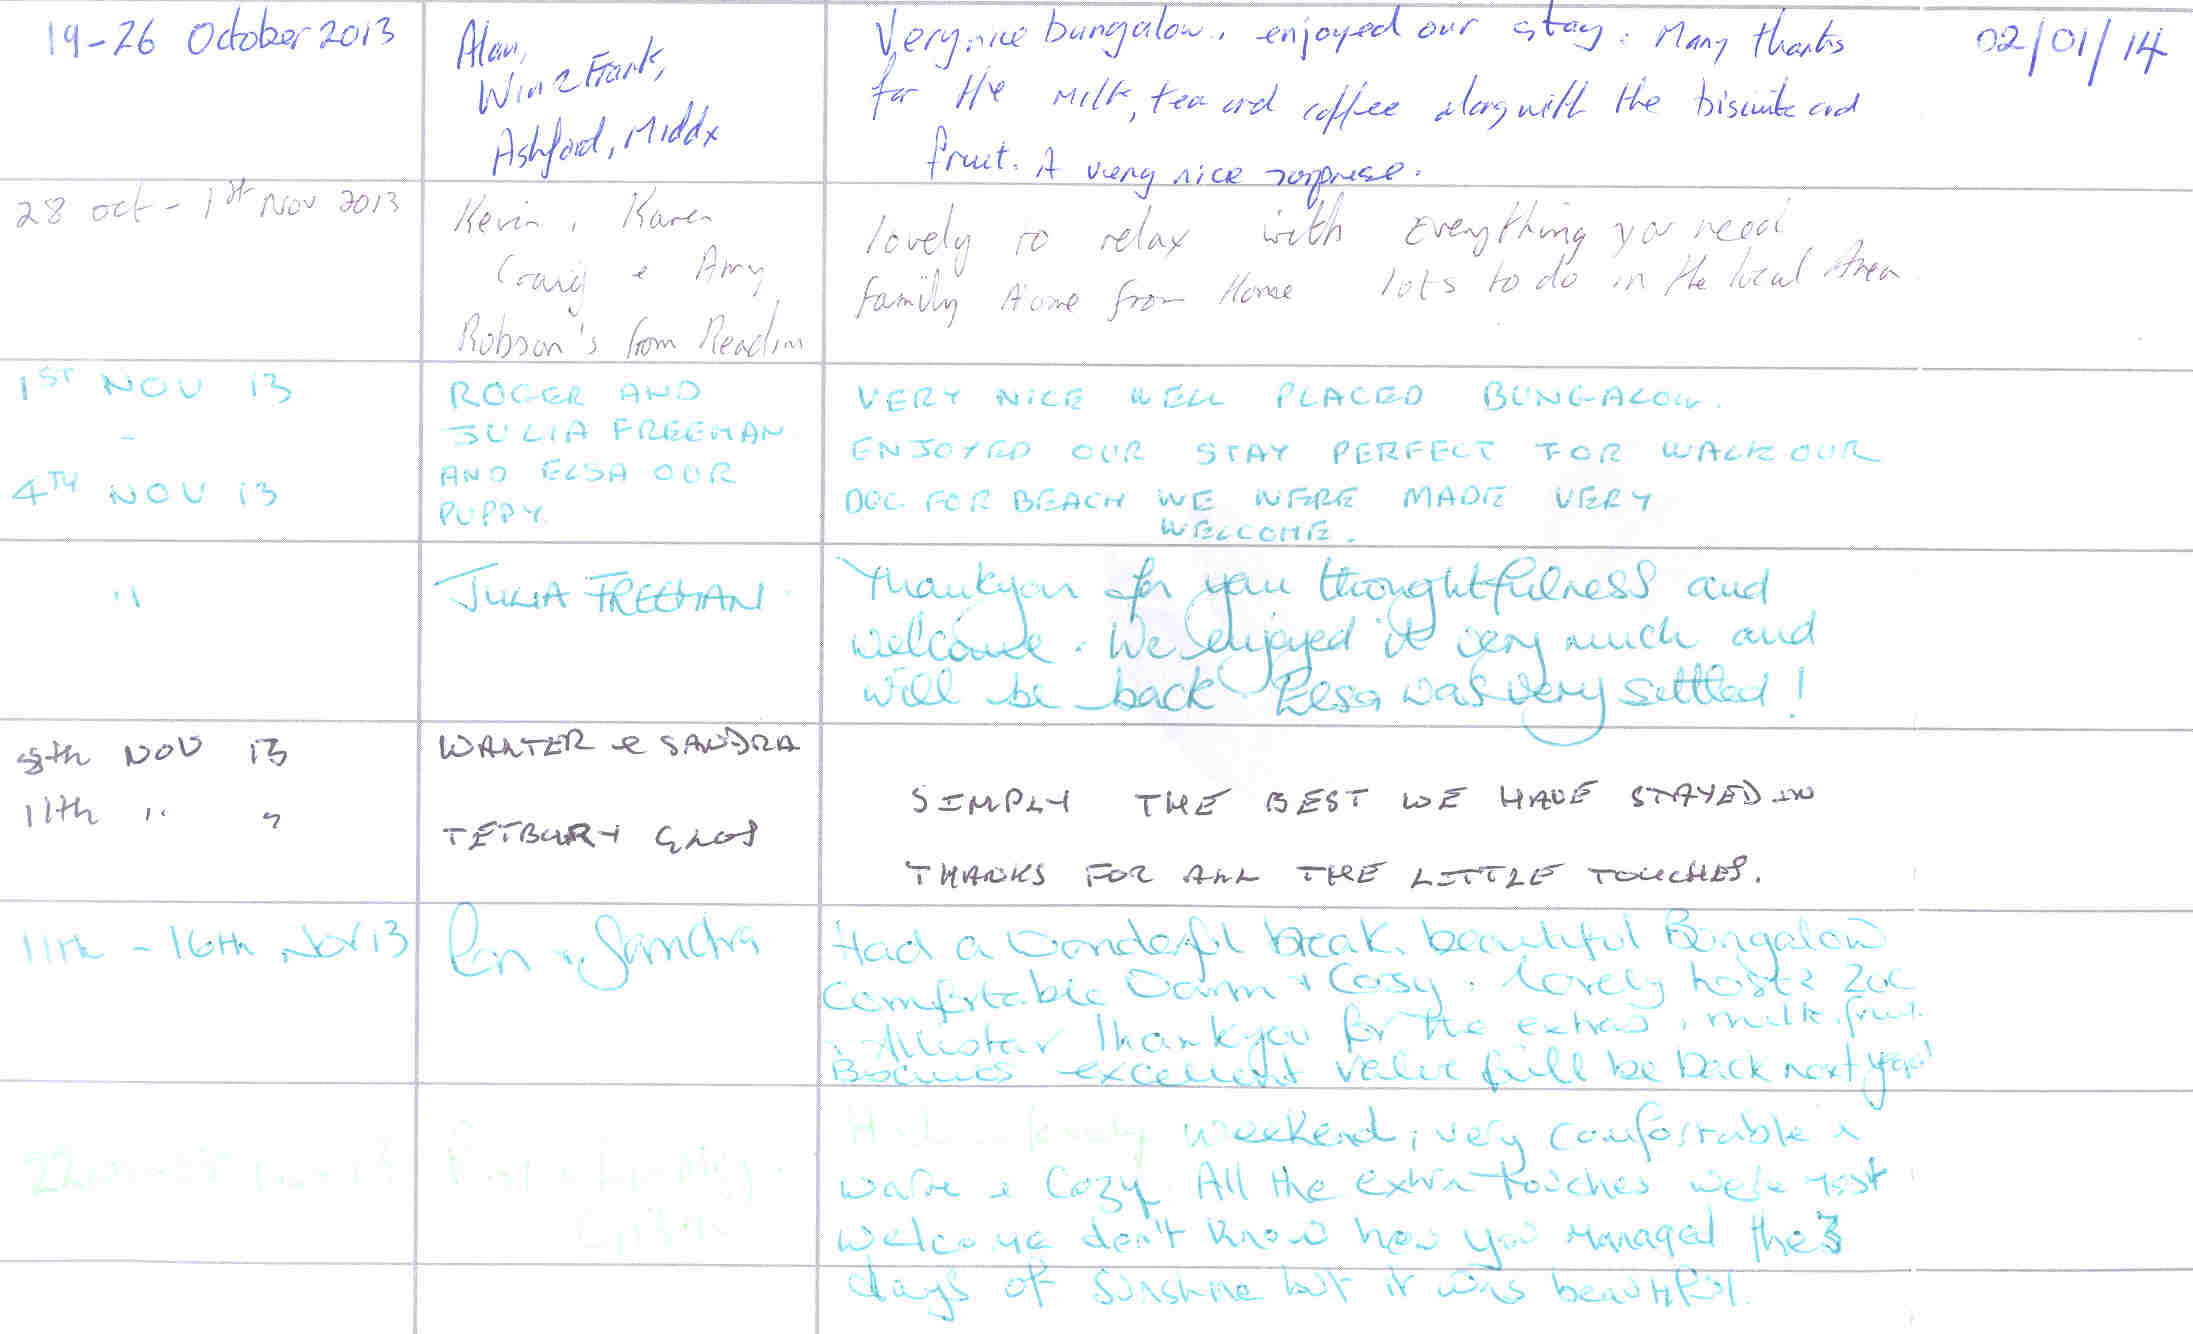 19-26 October 2013
Alan,
Win & Frank,
Ashford, Middx
Very nice bungalow, enjoyed our stay. Many thanks
for the milk, tea and coffee along with the biscuits and
fruit. A very nice surprise.
02/01/14
28 oct - 1st Nov 2013
Kevin, Karen
Craig & Amy
Robson's from Readin
lovely to relax with everything you need
family Home from Home lots to do in the local Area
1ST NOV 13
-
4TH NOV 13
ROGER AND
JULIA FREEMAN
AND ELSA OUR
PUPPY.
VERY NICE WELL PLACED BUNGALOW.
ENJOYED OUR STAY PERFECT FOR WALK OUR
DOG FOR BEACH WE WERE MADE VERY
WELCOME.
"
JULIA FREEMAN
Thankyou for your thoughtfulness and
welcome. We enjoyed it very much and
will be back Elsa was very settled!
8th NOV 13
11th " "
WALTER & SANDRA
TETBURY GLOS
SIMPLY THE BEST WE HAVE STAYED IN
THANKS FOR ALL THE LITTLE TOUCHES.
11th - 16th Nov 13
& Sandra
Had a Wonderful break, beautiful Bungalow
Comfortable Warm & Cosy. Lovely hosts
Allistar Thankyou for the extras, milk, fruit
Biscuits excellent value will be back next year
22 13
weekend, very comfortable
warm & Cozy. All the extra touches were most
welcome don't know how you managed the 3
days of sunshine but it was beautiful.